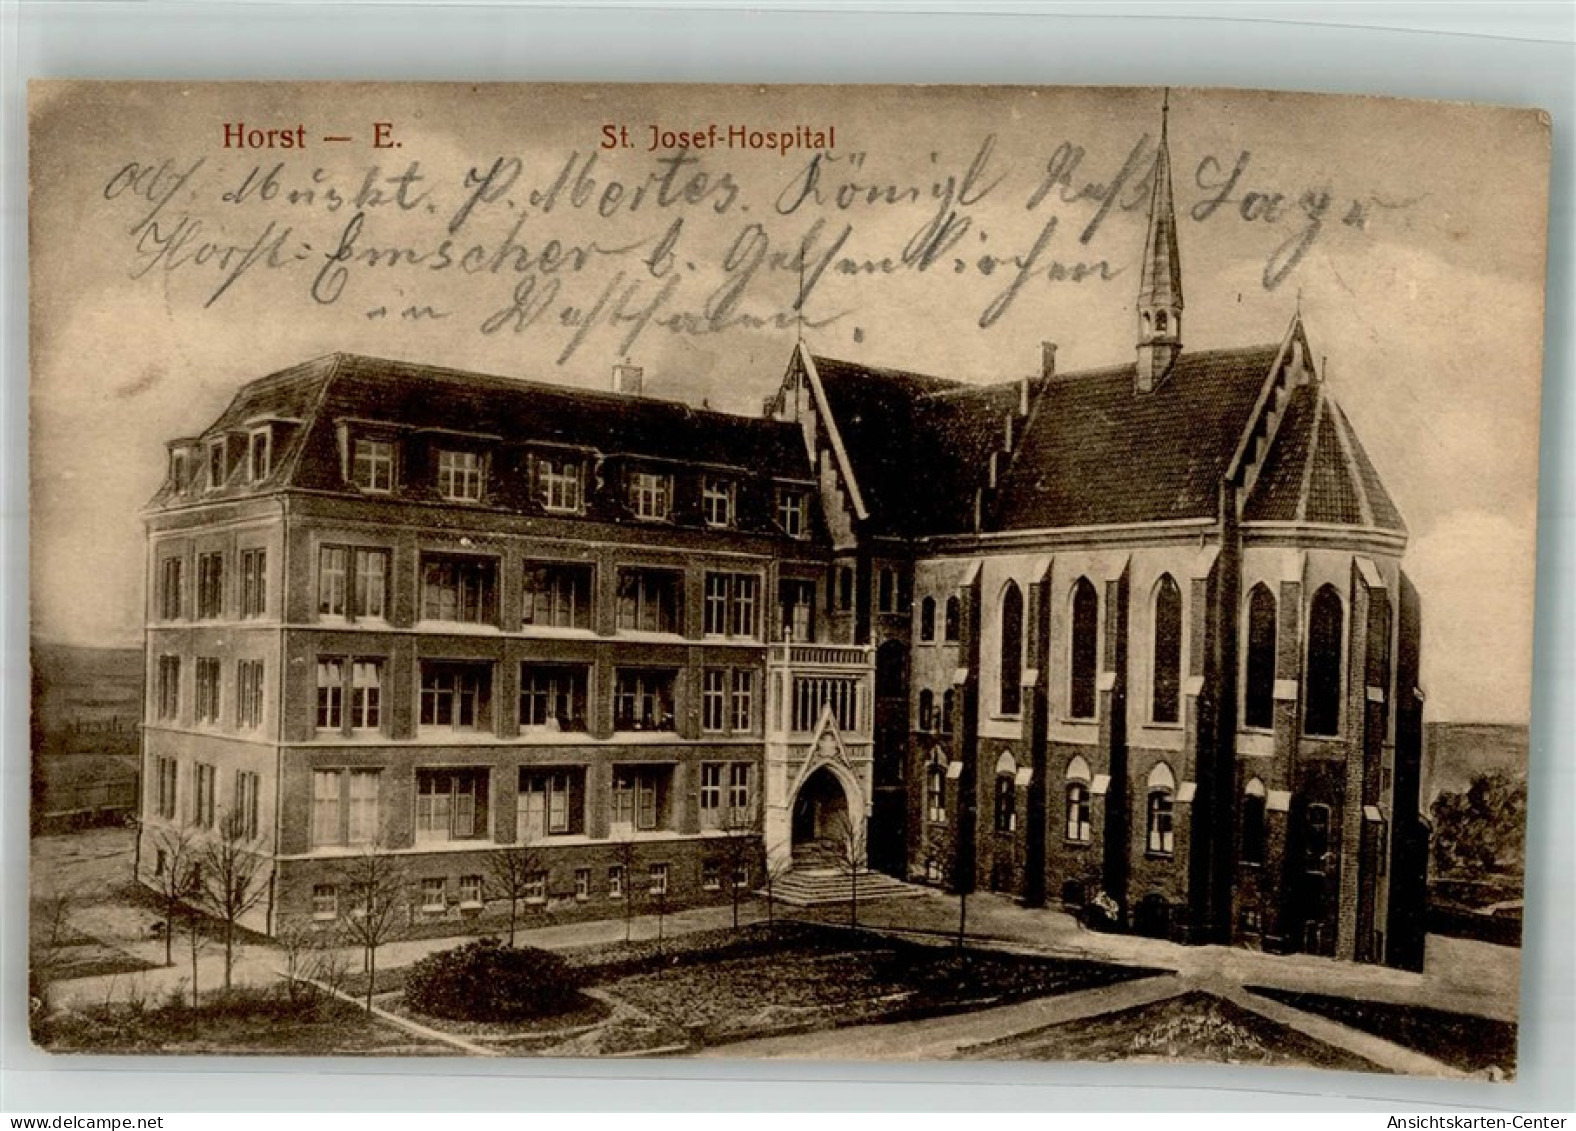 Horst — E. St. Josef-Hospital
Abs. Muskt. P. Mertes. Königl Res. Lazar.
Horst-Emscher b. Gelsenkirchen
in Westfalen.
delcampe.net
Ansichtskarten-Center